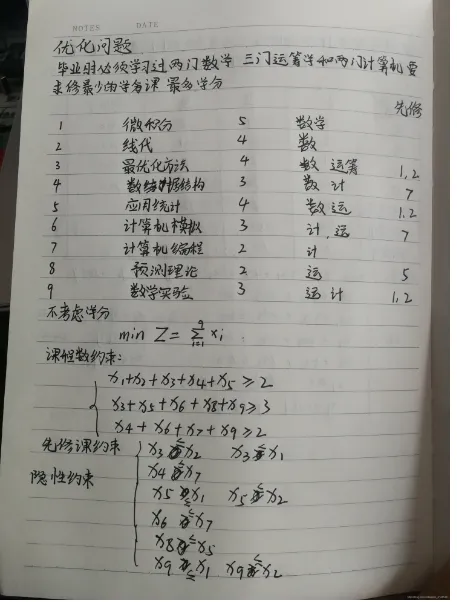 NOTES DATE
优化问题
毕业时必须学习过两门数学 三门运筹学和两门计算机 要
求修最少的学多课 最多学分
先修
1 微积分 5 数学
2 线代 4 数
3 最优化方法 4 数 运筹 1,2
4 数据结构 3 数 计 7
5 应用统计 4 数 运 1,2
6 计算机模拟 3 计,运 7
7 计算机编程 2 计
8 预测理论 2 运 5
9 数学实验 3 运 计 1,2
不考虑学分
min Z = Σ_{i=1}^{9} xi
课程数约束:
x1+x2+x3+x4+x5≥2
x3+x5+x6+x8+x9≥3
x4+x6+x7+x9≥2
先修课约束 x3≤x2 x3≤x1
隐性约束 x4≤x7
x5≤x1 x5≤x2
x6≤x7
x8≤x5
x9≤x1 x9≤x2